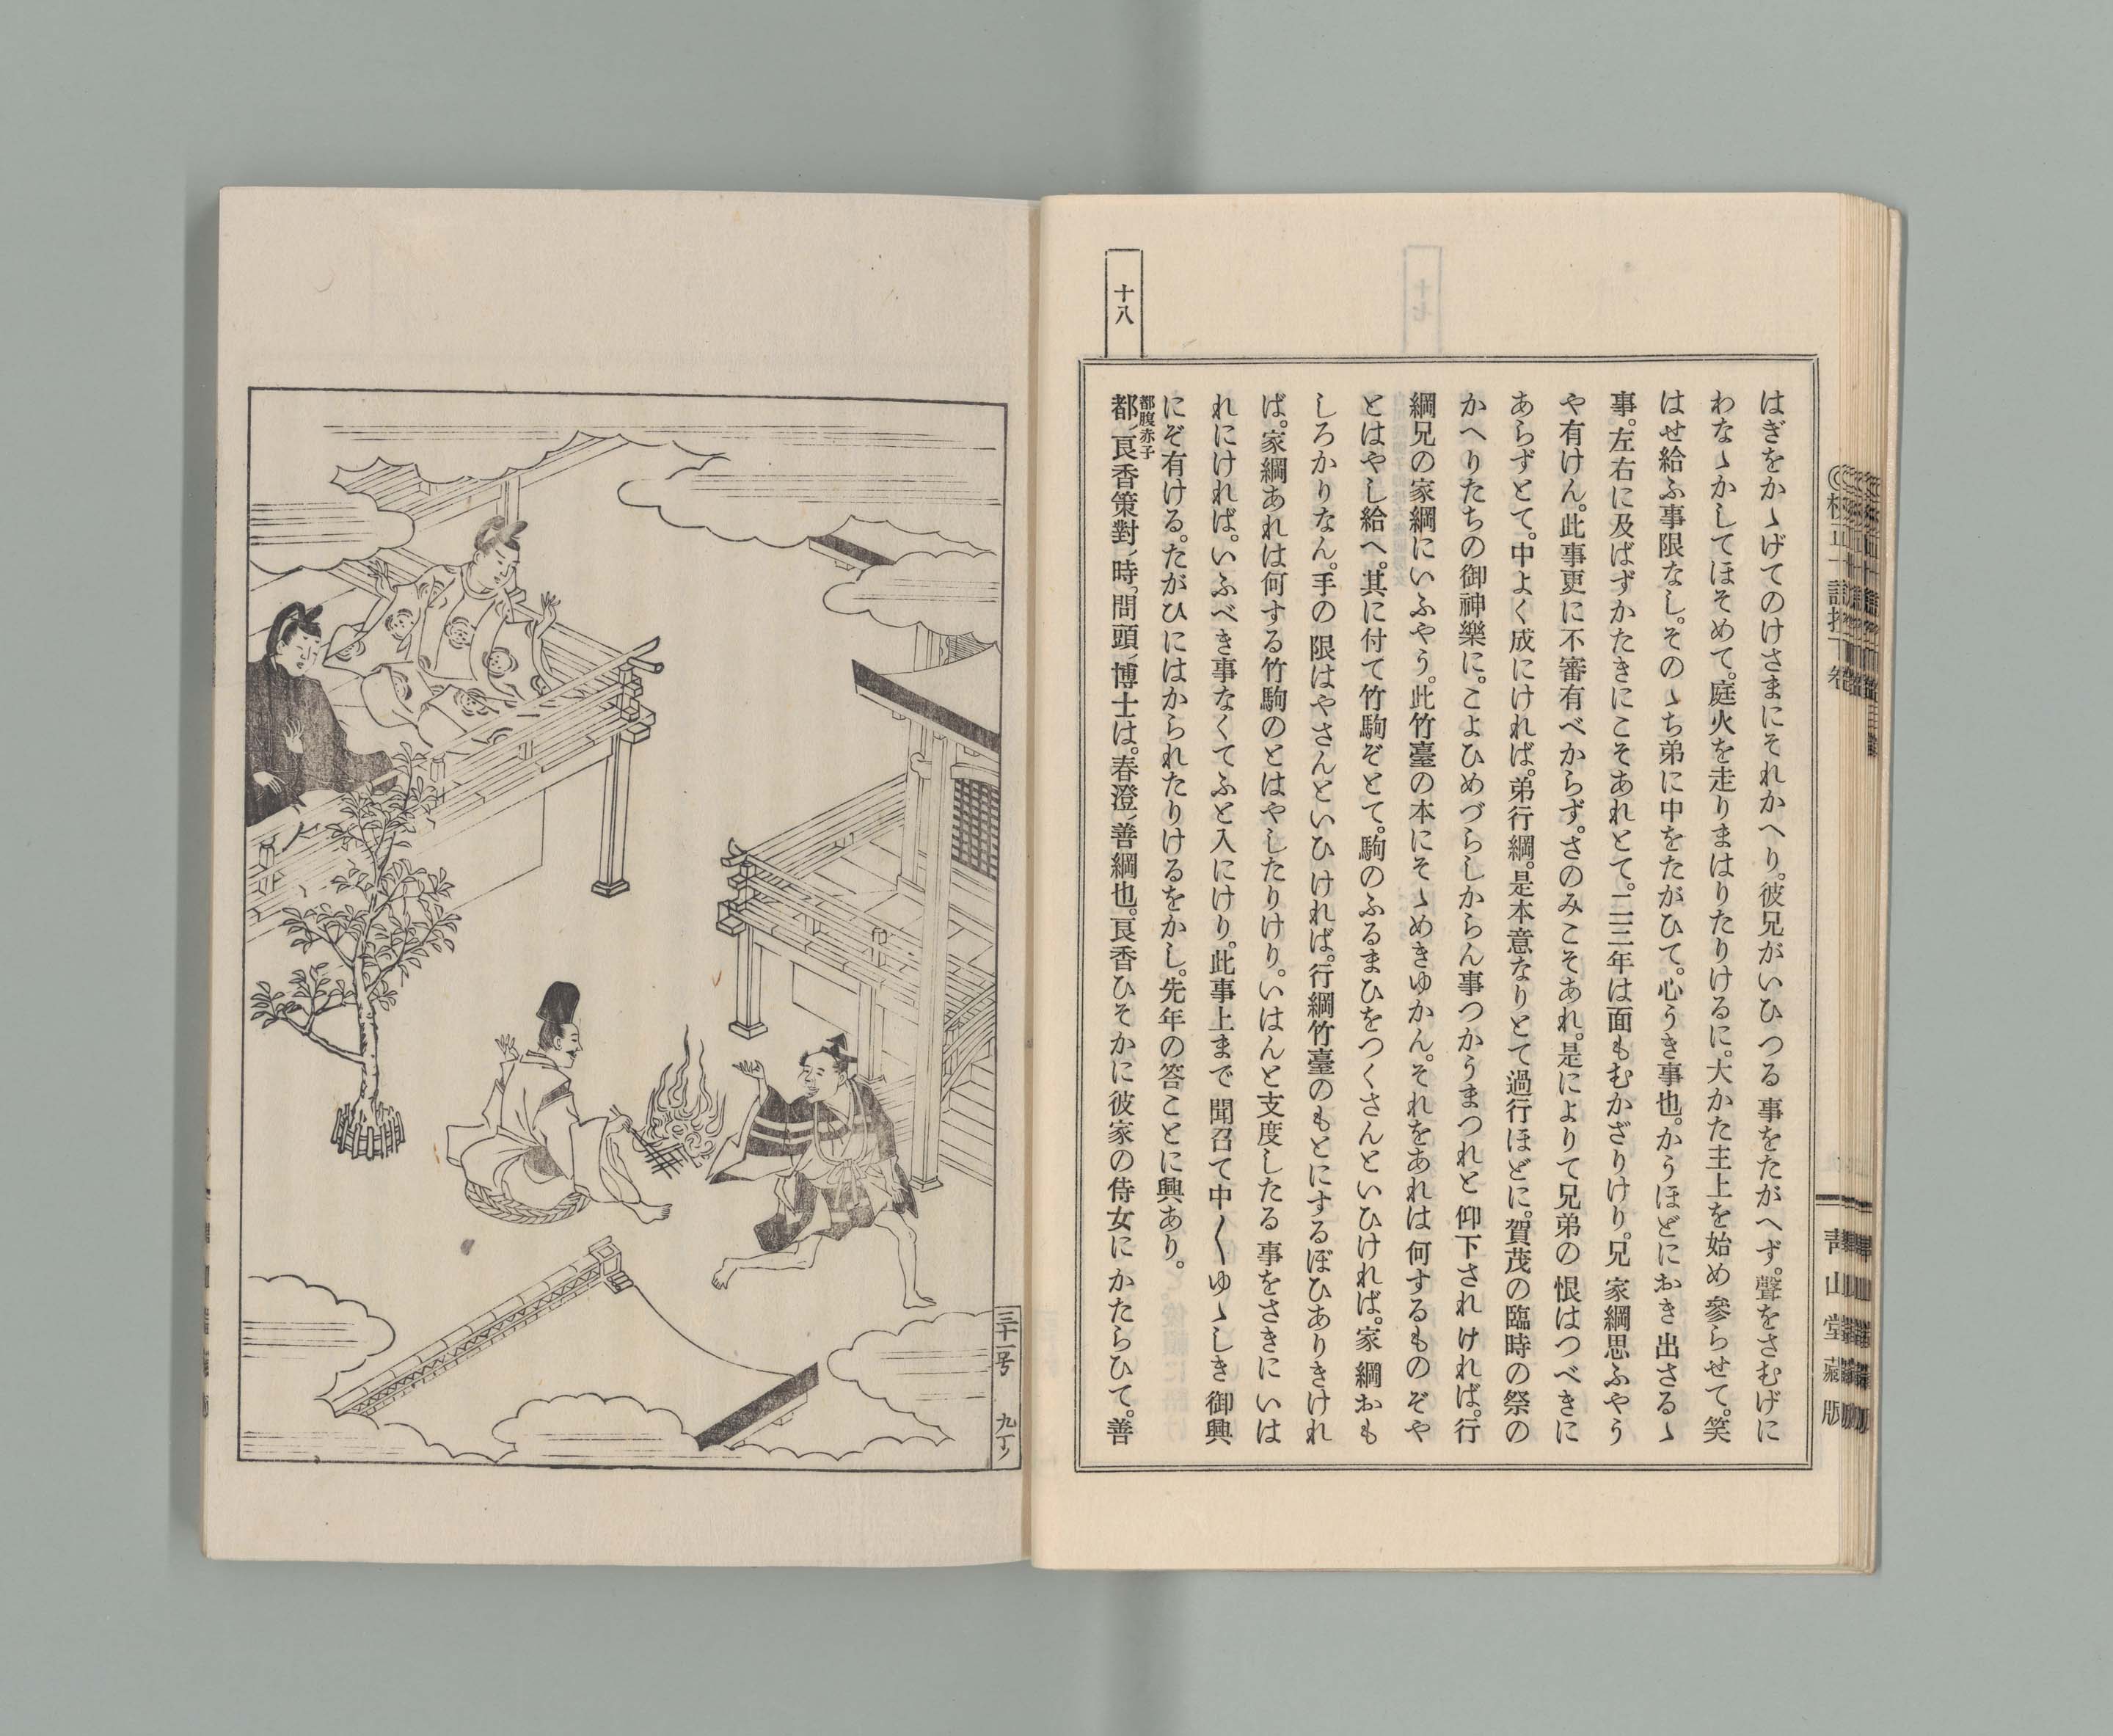 十八
はぎをかゝげてのけさまにそれかへり。彼兄がいひつる事をたがへず。聲をさむげに
わなゝかしてほそめて。庭火を走りまはりたりけるに。大かた主上を始め參らせて。笑
はせ給ふ事限なし。そのゝち弟に中をたがひて。心うき事也。かうほどにおき出さるゝ
事。左右に及ばずかたきにこそあれとて。二三年は面もむかざりけり。兄家綱思ふやう
や有けん。此事更に不審有べからず。さのみこそあれ。是によりて兄弟の恨はつべきに
あらずとて。中よく成にければ。弟行綱。是本意なりとて過行ほどに。賀茂の臨時の祭の
かへりたちの御神樂に。こよひめづらしからん事つかうまつれと仰下されければ。行
綱兄の家綱にいふやう。此竹臺の本にそゝめきゆかん。それをあれは何するものぞや
とはやし給へ。其に付て竹駒ぞとて。駒のふるまひをつくさんといひければ。家綱おも
しろかりなん。手の限はやさんといひければ。行綱竹臺のもとにするぼひありきけれ
ば。家綱あれは何する竹駒のとはやしたりけり。いはんと支度したる事をさきにいは
れにければ。いふべき事なくてふと入にけり。此事上まで聞召て中〱ゆゝしき御興
にぞ有ける。たがひにはかられたりけるをかし。先年の答ことに興あり。
都腹赤子
都良香策對ノ時。問頭ノ博士は。春澄ノ善綱也。良香ひそかに彼家の侍女にかたらひて。善
青山堂藏版
三十一号 九丁